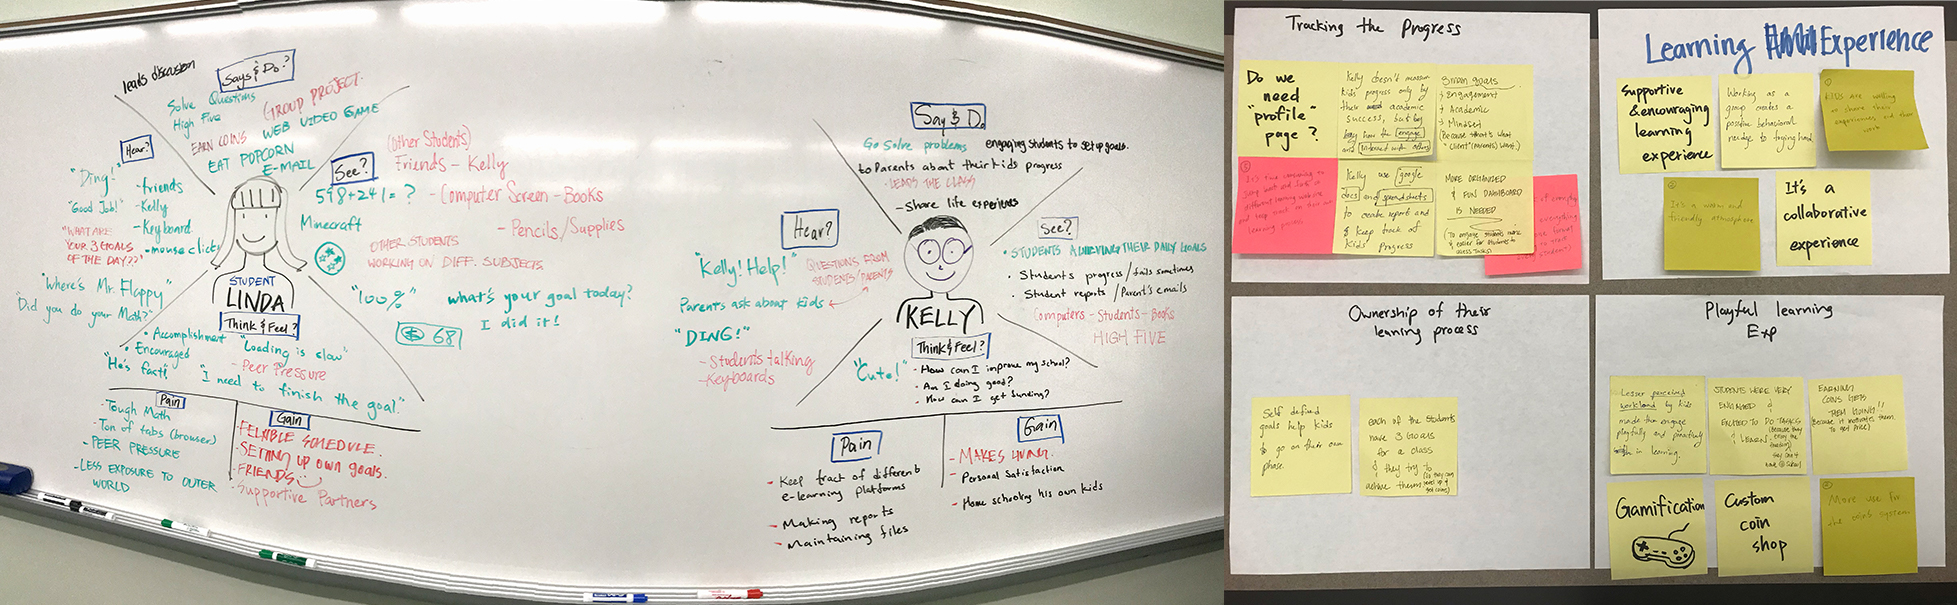 leads discussion
Says & Do?
Solve Questions
High Five
GROUP PROJECT
EARN COINS
WEB VIDEO GAME
EAT POPCORN
E-MAIL
Hear?
"Ding!"
"Good Job!"
"WHAT ARE
YOUR 3 GOALS
OF THE DAY??"
- friends
- Kelly
- Keyboard
- mouse click
"Where's Mr. Floppy"
"Did you do your Math?"
See?
(Other Students)
Friends - Kelly
598+241= ?
- Computer Screen - Books
Minecraft
- Pencils/Supplies
OTHER STUDENTS
WORKING ON DIFF. SUBJECTS
"100%"
what's your goal today?
I did it!
68
STUDENT
LINDA
Think & Feel?
• Accomplishment
• Encouraged
"He's fast!
"Loading is slow"
- Peer Pressure
"I need to finish the goal."
Pain
- Tough Math
- Ton of tabs (browser)
- PEER PRESSURE
- LESS EXPOSURE TO OUTER
WORLD
Gain
- FLEXIBLE SCHEDULE.
- SETTING UP OWN GOALS.
- FRIENDS
- Supportive Partners
Say & Do
Go Solve problems
engaging students to setup goals.
to Parents about their kids progress
- LEADS THE CLASS
- Share life experience
Hear?
"Kelly! Help!"
QUESTIONS FROM
STUDENTS/PARENTS
Parents ask about kids
"DING!"
- Students talking
- Keyboards
See?
• STUDENTS ACHIEVING THEIR DAILY GOALS
• Students progress/fails sometimes
• Student reports/Parent's emails
Computers - Students - Books
HIGH FIVE
KELLY
Think & Feel?
"Cute!"
• How can I improve my school?
• Am I doing good?
• How can I get funding?
Pain
- Keep track of different
e-learning platforms
- Making reports
- Maintaining files
Gain
- MAKES LIVING.
- Personal Satisfaction
- Home schooling his own kids
Tracking the Progress
Do we
need
"profile"
page?
Kelly doesn't measure
kids' progress only by
their academic
success, but by
how they engage
and interact with others
3 main goals
Engagement
Academic
Mindset
(Because that's what
"client" (parents) want.)
Kelly use google
docs and spreadsheets
to create report and
& keep track of
kids progress
MORE ORGANIZED
& FUN DASHBOARD
IS NEEDED
(To engage students more
& easier for students to
access tasks)
Learning Experience
Supportive
& encouraging
learning
experience
Working as a
group creates a
positive behavioral
nudge to trying hard.
KIDS are willing
to share their
experiences and their
work
It's a warm and
friendly atmosphere
It's a
collaborative
experience
Ownership of their
learning process
Self defined
goals help kids
to go on their own
phase.
each of the students
have 3 Goals
for a class
& they try to
achieve them
(so they can
level up &
get coins)
Playful learning
Exp
Lesser perceived
workload by kids
made them engage
playfully and proactively
in learning.
STUDENTS WERE VERY
ENGAGED &
EXCITED TO DO TASKS
& LEARN.
EARNING
COINS GETS
THEM GOING!!
(Because it motivates them
to get prize)
Gamification
Custom
coin
shop
More use for
the coins system.